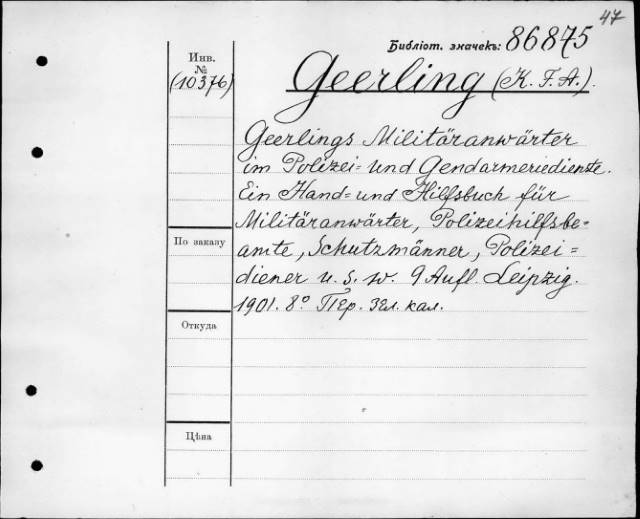 47
Библіот. значекъ: 86875
Инв.
№
(10376)
Geerling (K. F. A.).
Geerlings Militäranwärter
im Polizei= und Gendarmeriedienste.
Ein Hand= und Hilfsbuch für
Militäranwärter, Polizeihilfsbe-
amte, Schutzmänner, Polizei=
diener u. s. w. 9 Aufl. Leipzig.
1901. 8° Пер. Зел. кал.
По заказу
Откуда
Цѣна